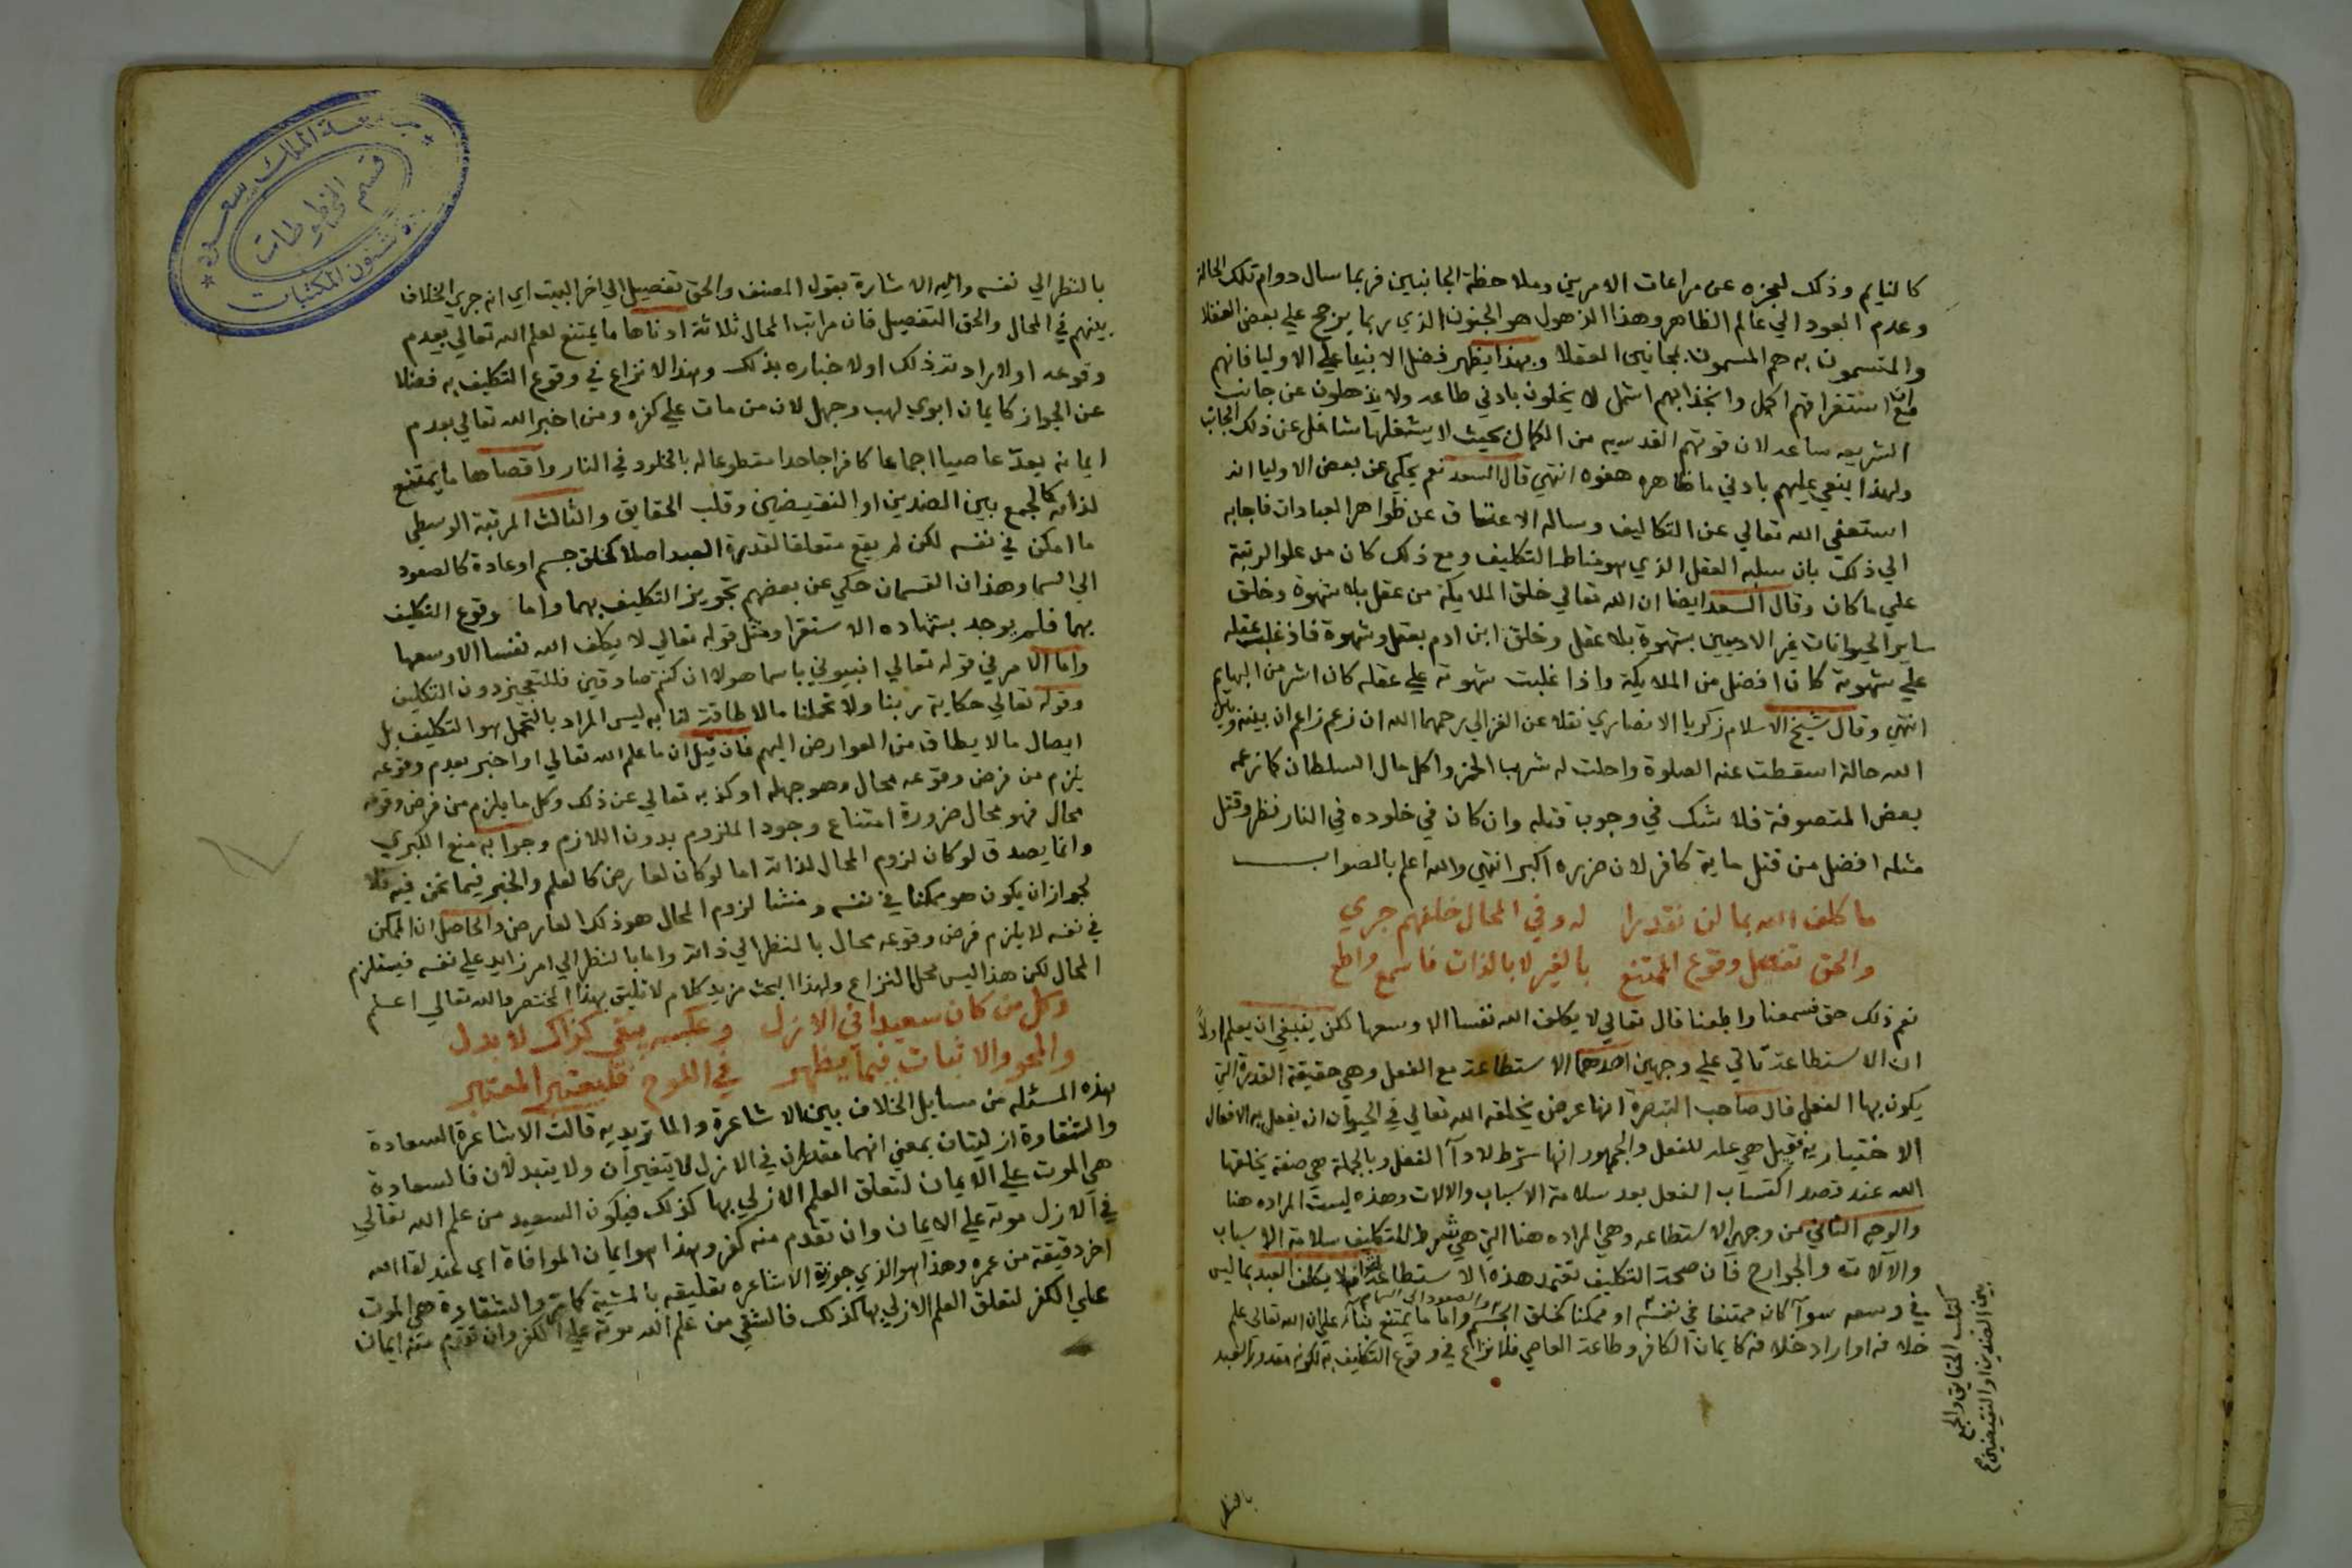 كالنايم وذلك لعجزه عن مراعات الامرين وملاحظة الجانبين فربما سال دوام تلك الحالة
وعدم العود الي عالم الظاهر وهذا الذهول هو الجنون الذي ربما يرجح علي بعض العقلا
والمتسمون به هم المسمون بمجانين العقلا وبهذا يظهر فضل الانبيا علي الاوليا فانهم
مع ان استغراقهم اكمل وانجذابهم اشمل لا يخلون بادني طاعه ولا يذهلون عن جانب
الشريعه ساعه لان قوتهم القدسيه من الكمال بحيث لا يشغلها شاغل عن ذلك الجانب
ولهذا ينعي عليهم بادني ما ظاهره هفوه انتهي قال السعد نعم يحكي عن بعض الاوليا انه
استعفي الله تعالي عن التكاليف وساله الاعتاق عن ظواهر العبادات فاجابه
الي ذلك بان سلبه العقل الذي هو مناط التكليف ومع ذلك كان من علو الرتبة
علي ما كان وقال السعد ايضا ان الله تعالي خلق الملايكة من عقل بلا شهوة وخلق
ساير الحيوانات غير الادميين بشهوة بلا عقل وخلق ابن ادم بعقل وشهوة فاذ غلب عقله
علي شهوته كان افضل من الملايكة واذا غلبت شهوته علي عقله كان اشر من البهايم
انتهي وقال شيخ الاسلام زكريا الانصاري نقلا عن الغزالي رحمهما الله ان زعم زاعم ان بينه وبين
الله حالة اسقطت عنه الصلوة واحلت له شرب الخمر واكل مال السلطان كما زعمه
بعض المتصوفة فلا شك في وجوب قتله وان كان في خلوده في النار نظر وقتل
مثله افضل من قتل ماية كافر لان ضرره اكبر انتهي والله اعلم بالصواب
ما كلف الله بما لن نقدرا له وفي المحال خلفهم جري
والحق تفصيل وقوع الممتنع بالغير لا بالذات فاسمع واطع
نعم ذلك حق فسمعنا واطعنا قال تعالي لا يكلف الله نفسا الا وسعها لكن ينبغي ان يعلم اولا
ان الاستطاعة تاتي علي وجهين احدهما الاستطاعة مع الفعل وهي حقيقة القدرة التي
يكون بها الفعل قال صاحب التبصرة انها عرض يخلقه الله تعالي في الحيوان ان يفعل به الافعال
الاختياريه فقيل هي علة للفعل والجمهور انها شرط لادآ الفعل وبالجملة هي صفة يخلقها
الله عند قصد اكتساب الفعل بعد سلامة الاسباب والالات وهذه ليست المراده هنا
والوجه الثاني من وجهي الاستطاعه وهي المراده هنا التي هي شرط للتكليف سلامة الاسباب
والآلات والجوارح فان صحة التكليف تعتمد هذه الاستطاعة فلا يكلف العبد بما ليس
في وسعه سوآ كان ممتنعا في نفسه او ممكنا كخلق الجسم والصعود الي السما واما ما يمتنع بناء علي ان الله تعالي علم
خلافه او اراد خلافه كايمان الكافر وطاعة العاصي فلا نزاع في وقوع التكليف به لكونه مقدور العبد
كقلب الحقايق والجمع
بين الضدين او النقيضين
بالنظر
بالنظر الي نفسه واليه الاشارة بقول المصنف والحق تفصيل الي اخر البيت اي انه جري الخلاف
بينهم في المحال والحق التفصيل فان مراتب المحال ثلاثة ادناها ما يمتنع لعلم الله تعالي بعدم
وقوعه او لارادته ذلك او لاخباره بذلك وهذا لا نزاع في وقوع التكليف به فضلا
عن الجواز كايمان ابوي لهب وجهل لان من مات علي كفره ومن اخبر الله تعالي بعدم
ايمانه يعد عاصيا اجماعا كافرا جاحدا مقطوعا له بالخلود في النار واقصاها ما يمتنع
لذاته كالجمع بين الضدين او النقيضين وقلب الحقايق والثالث المرتبة الوسطي
ما امكن في نفسه لكن لم يقع متعلقا لقدرة العبد اصلا كخلق جسم او عادة كالصعود
الي السما وهذان القسمان حكي عن بعضهم تجويز التكليف بهما واما وقوع التكليف
بهما فلم يوجد بشهاده الاستقرا ومثل قوله تعالي لا يكلف الله نفسا الا وسعها
واما الامر في قوله تعالي انبيوني باسما هولا ان كنتم صادقين فللتعجيز دون التكليف
وقوله تعالي حكاية ربنا ولا تحملنا ما لا طاقة لنا به ليس المراد بالتحمل هو التكليف بل
ايصال ما لا يطاق من العوارض اليهم فان قيل ان ما علم الله تعالي او اخبر بعدم وقوعه
يلزم من فرض وقوعه محال وهو جهله او كذبه تعالي عن ذلك وكل ما يلزم من فرض وقوعه
محال فهو محال ضرورة امتناع وجود الملزوم بدون اللازم وجوابه منع الكبري
وانما يصدق لو كان لزوم المحال لذاته اما لو كان لعارض كالعلم والخبر فيما نحن فيه فلا
لجواز ان يكون هو ممكنا في نفسه ومنشا لزوم المحال هو ذلك العارض والحاصل ان الممكن
في نفسه لا يلزم فرض وقوعه محال بالنظر الي ذاته واما بالنظر الي امر زايد علي نفسه فيستلزم
المحال لكن هذا ليس محل النزاع ولهذا البحث مزيد كلام لا تليق بهذا المختصر والله تعالي اعلم
وكل من كان سعيدا في الازل وعكسه يبقي كذاك لا بدل
والمحو والاثبات فيما يظهر في اللوح فليعتبر المعتبر
هذه المسئله من مسايل الخلاف بين الاشاعرة والماتريديه قالت الاشاعرة السعادة
والشقاوة ازليتان بمعني انهما مقدران في الازل لا يتغيران ولا يتبدلان فالسعادة
هي الموت علي الايمان لتعلق العلم الازلي بها كذلك فيكون السعيد من علم الله تعالي
في الازل موته علي الايمان وان تقدم منه كفر وهذا هو ايمان الموافاة اي عند لقا الله
اخر دقيقة من عمره وهذا هو الذي جوزه الاشاعره تعليقه بالمشية كما مر والشقاوة هي الموت
علي الكفر لتعلق العلم الازلي بها كذلك فالشقي من علم الله موته علي الكفر وان تقدم منه ايمان
جامعة الملك سعود
قسم المخطوطات
شئون المكتبات